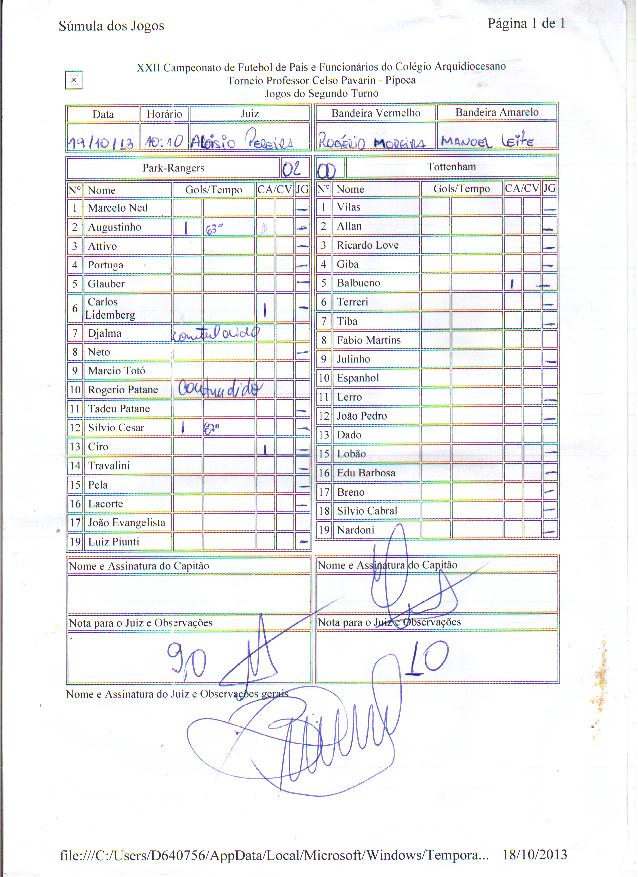 Súmula dos Jogos Página 1 de 1
XXII Campeonato de Futebol de Pais e Funcionários do Colégio Arquidiocesano
Torneio Professor Celso Pavarin - Pipoca
Jogos do Segundo Turno
Data Horário Juiz Bandeira Vermelho Bandeira Amarelo
19/10/13 10:10 Aloísio Pereira Rogério Moreira Manoel Leite
Park-Rangers 02 00 Tottenham
Nº Nome Gols/Tempo CA/CV JG Nº Nome Gols/Tempo CA/CV JG
1 Marcelo Ned — 1 Vilas —
2 Augustinho 1 63" — 2 Allan —
3 Attivo — 3 Ricardo Love —
4 Portuga — 4 Giba —
5 Glauber — 5 Balbueno 1 —
6 Carlos Lidemberg 1 — 6 Terreri —
7 Djalma 7 Tiba —
8 Neto — 8 Fabio Martins —
9 Marcio Totó 9 Julinho —
10 Rogerio Patane Contundido 10 Espanhol —
11 Tadeu Patane — 11 Lerro —
12 Silvio Cesar 1 — 12 João Pedro —
13 Ciro 1 — 13 Dado —
14 Travalini — 15 Lobão —
15 Pela — 16 Edu Barbosa —
16 Lacorte — 17 Breno —
17 João Evangelista — 18 Silvio Cabral —
19 Luiz Piunti — 19 Nardoni
Nome e Assinatura do Capitão Nome e Assinatura do Capitão
Nota para o Juiz e Observações Nota para o Juiz e Observações
9,0 10
Nome e Assinatura do Juiz e Observações gerais
file:///C:/Users/D640756/AppData/Local/Microsoft/Windows/Tempora... 18/10/2013